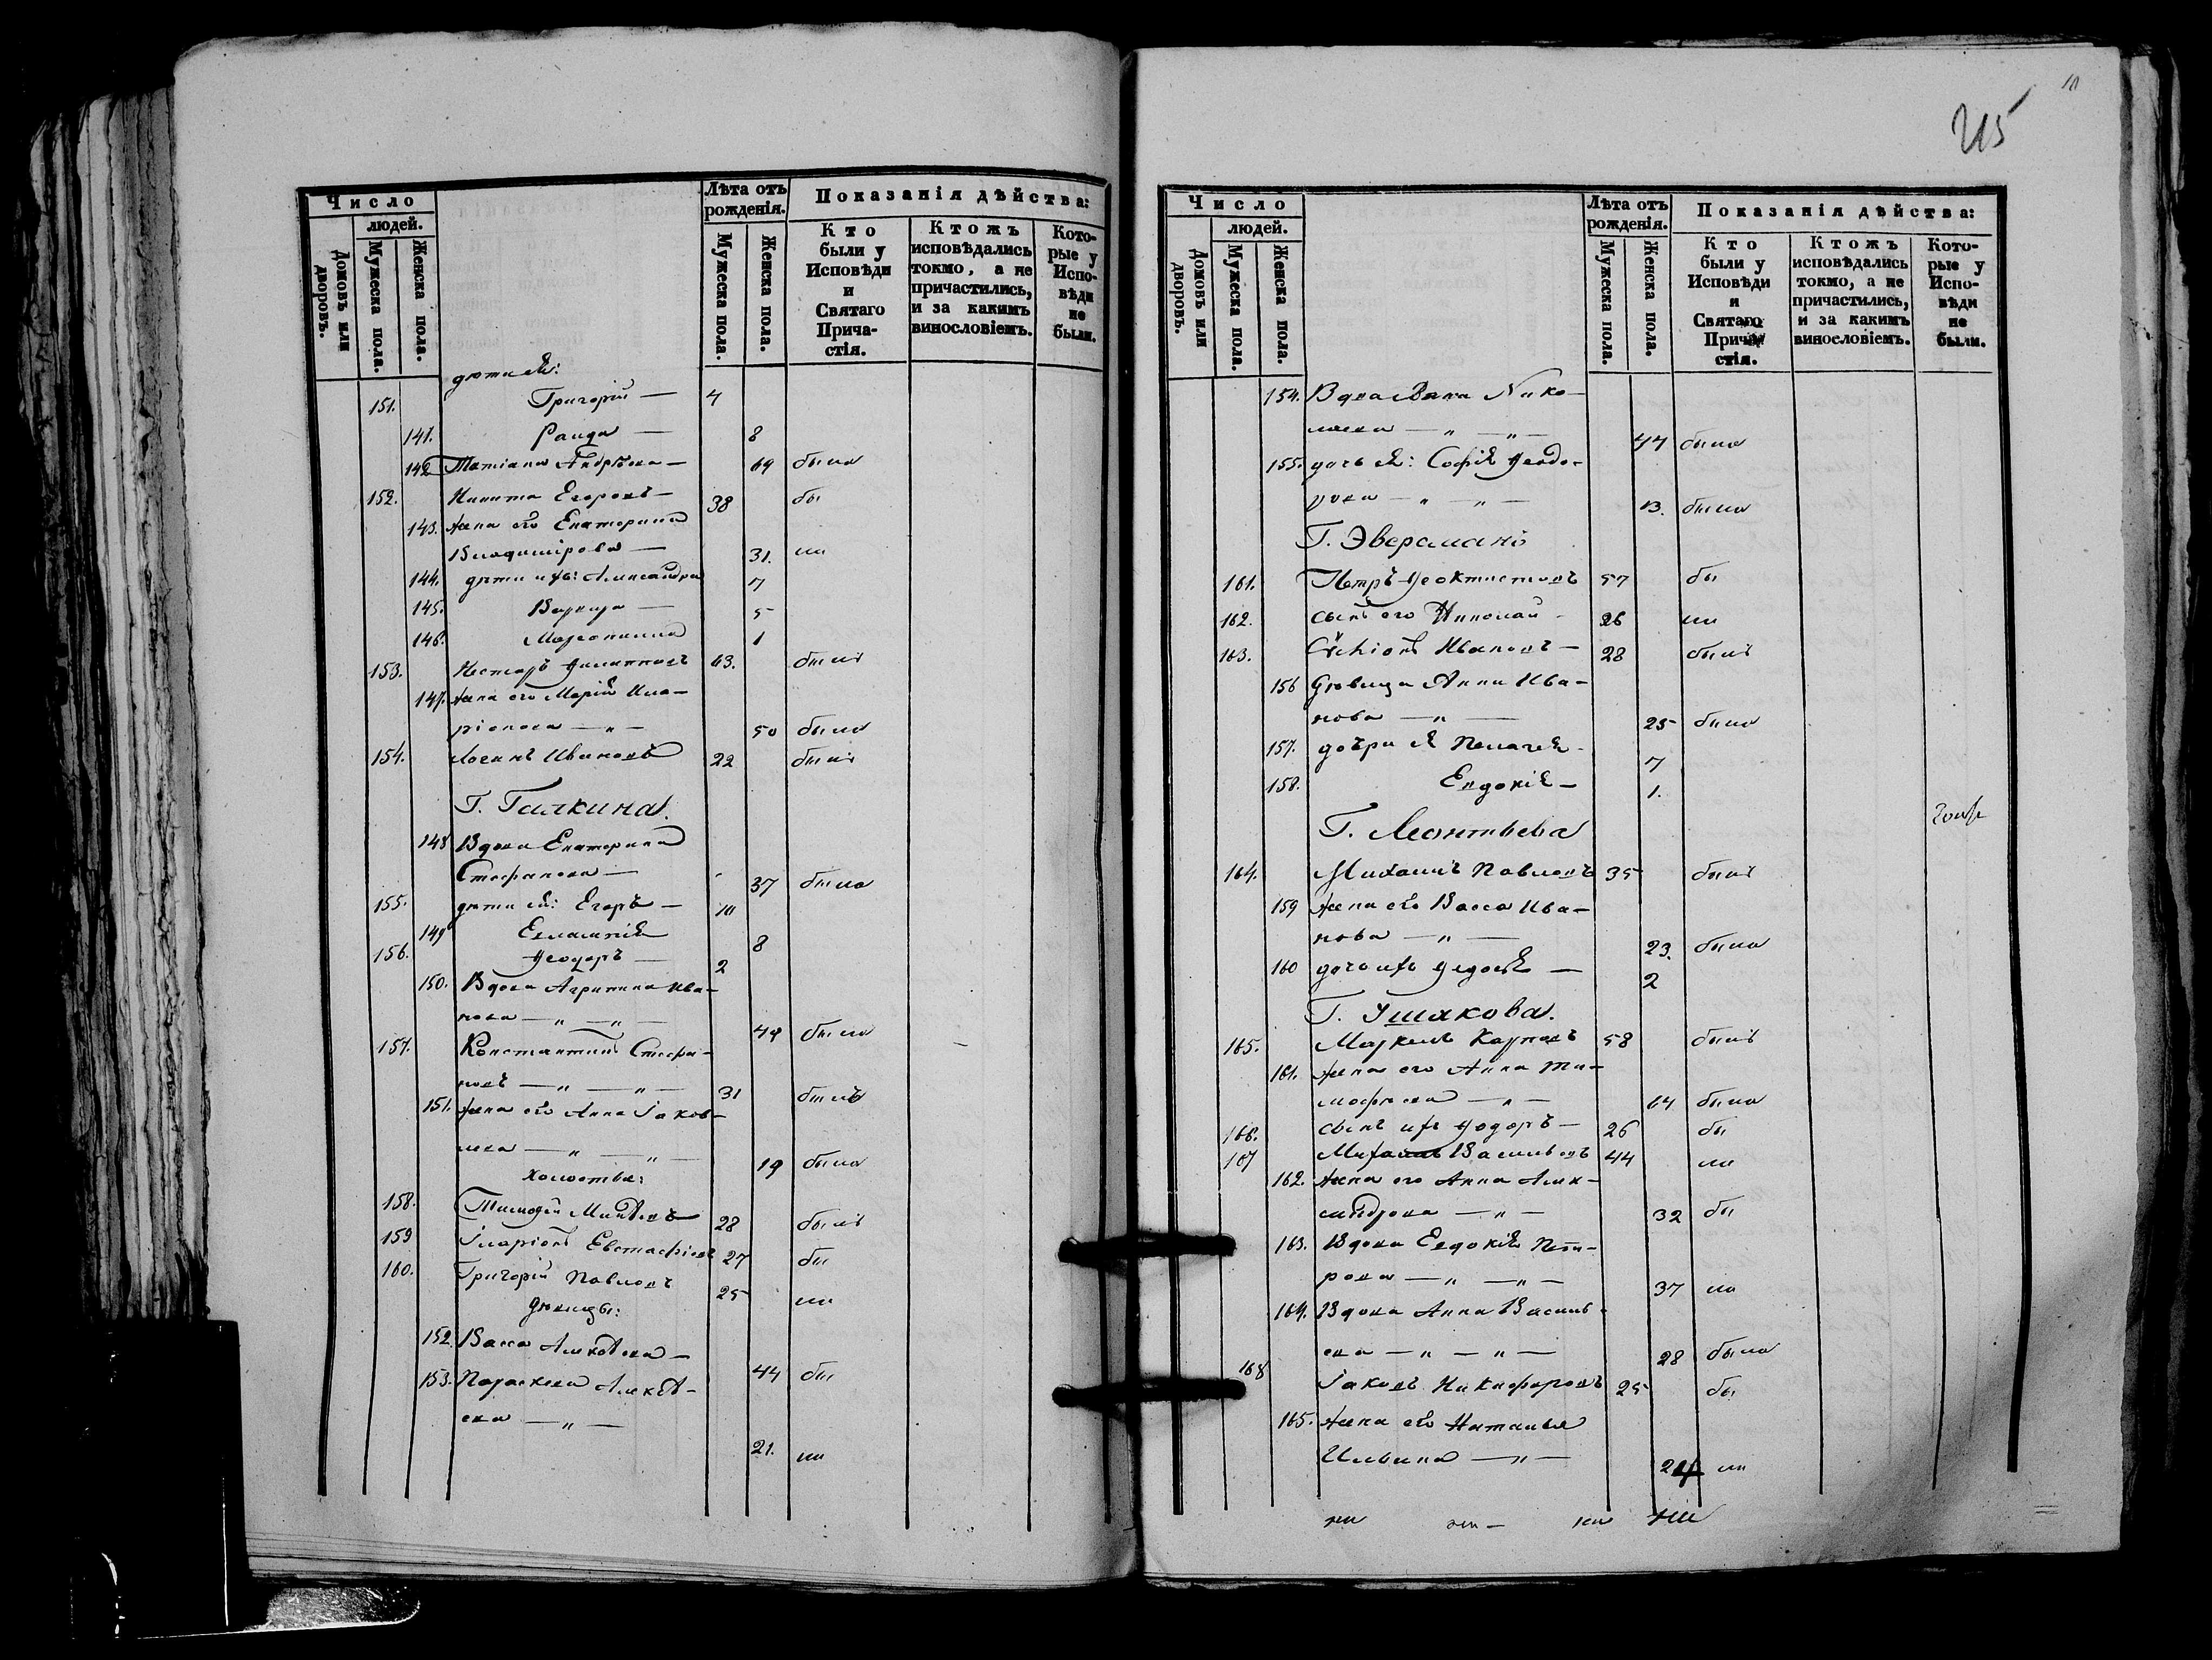 Число
людей.
Домовъ или дворовъ.
Мужеска пола.
Женска пола.
Лѣта отъ рожденія.
Мужеска пола.
Женска пола.
Показанія дѣйства:
Кто были у Исповѣди и Святаго Прича-стія.
Ктожъ исповѣдались токмо, а не причастились, и за какимъ винословіемъ.
Кото-рые у Испо-вѣди не были.
дѣти ея:
151. Григорій — 4
141. Раида — 8
142 Татіана Андрѣева — 69 была
152. Никита Егоровъ — 38 бы
143. жена его Екатерина
Владимірова — 31. ли
144. дѣти ихъ: Александра 7
145. Варвара — 5
146. 1
153. Несторъ Филипповъ 63. былъ
147. жена его Марія Ила-
ріонова — „ — 50 была
154. Логинъ Ивановъ 22 былъ
Г. Галкина.
148 Вдова Екатерина
Стефанова — 37 была
155. дѣти ея: Егоръ — 10
149 Евлампія 8
156. Ѳеодоръ — 2
150. Вдова Агрипина Ива-
нова — „ — „ — 49 была
157. Константинъ Стефа-
новъ — „ — „ — 31 былъ
151. жена его Анна Іаков-
лева — „ — „ — 19 была
холостые:
158. Тимоѳей 28 былъ
159 Иларіонъ Евстафіевъ 27 бы
160. Григорій Павловъ 25 ли
Дѣвицы:
152. Васса Алексѣева — 44 бы
153. Параскева Алексѣ-
ева — „ — 21. ли
215
Число
людей.
Домовъ или дворовъ.
Мужеска пола.
Женска пола.
Лѣта отъ рожденія.
Мужеска пола.
Женска пола.
Показанія дѣйства:
Кто были у Исповѣди и Святаго Прича-стія.
Ктожъ исповѣдались токмо, а не причастились, и за какимъ винословіемъ.
Кото-рые у Испо-вѣди не были.
154. Вдова Анна Нико-
лаева — „ — „ — 44 была
155. дочь ея: Софія Ѳеодо-
рова — „ — „ — 13. была
Г. Эверсмана
161. Петръ Ѳеоктистовъ 57 бы
162. сынъ его Николай — 26 ли
163. Ивановъ — 28 былъ
156 Дѣвица Анна Ива-
нова — „ — 25 была
157. дочери ея Пелагея — 7
158. Евдокія — 1.
Г. Леонтьева
164. Михаилъ Павловъ 35 былъ
159 жена его Васса Ива-
нова — „ — 23. была
160 дочь ихъ Ѳедосья — 2
Г. Ушакова.
165. Маркелъ Карповъ 58 былъ
161. жена его Анна Ти-
моѳеева — „ — 64 была
166. сынъ ихъ Ѳодоръ — 26 бы
167 Михаилъ Васильевъ 44 ли
162. жена его Анна Алек-
сандрова — „ — 32 бы
163. Вдова Евдокія Пет-
рова — „ — „ — 37 ли
164. Вдова Анна Василь-
ева — „ — „ — 28 была
168 Іаковъ Никифоровъ 25 бы
165. жена его Наталья
Ильина — „ — 24 ли